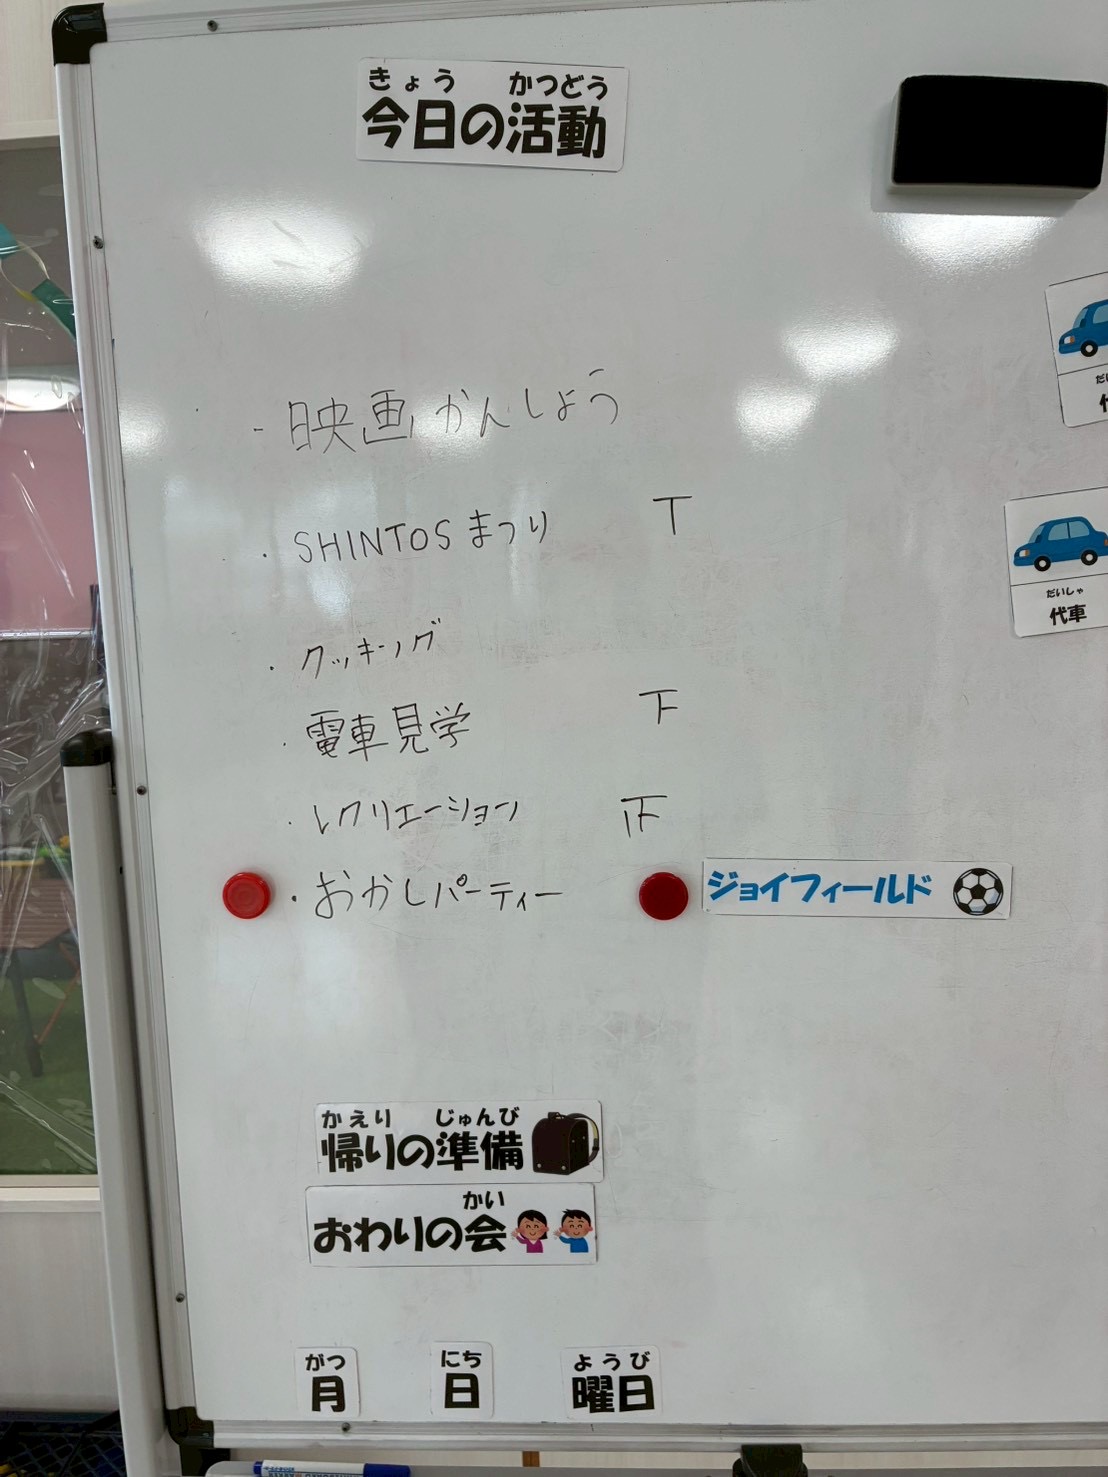 きょう かつどう
今日の活動
- 映画かんしょう
・SHINTOSまつり 丅
・クッキング
・電車見学 下
・レクリエーション 正
・おかしパーティー ジョイフィールド
だいしゃ
代車
かえり じゅんび
帰りの準備
かい
おわりの会
がつ にち ようび
月 日 曜日